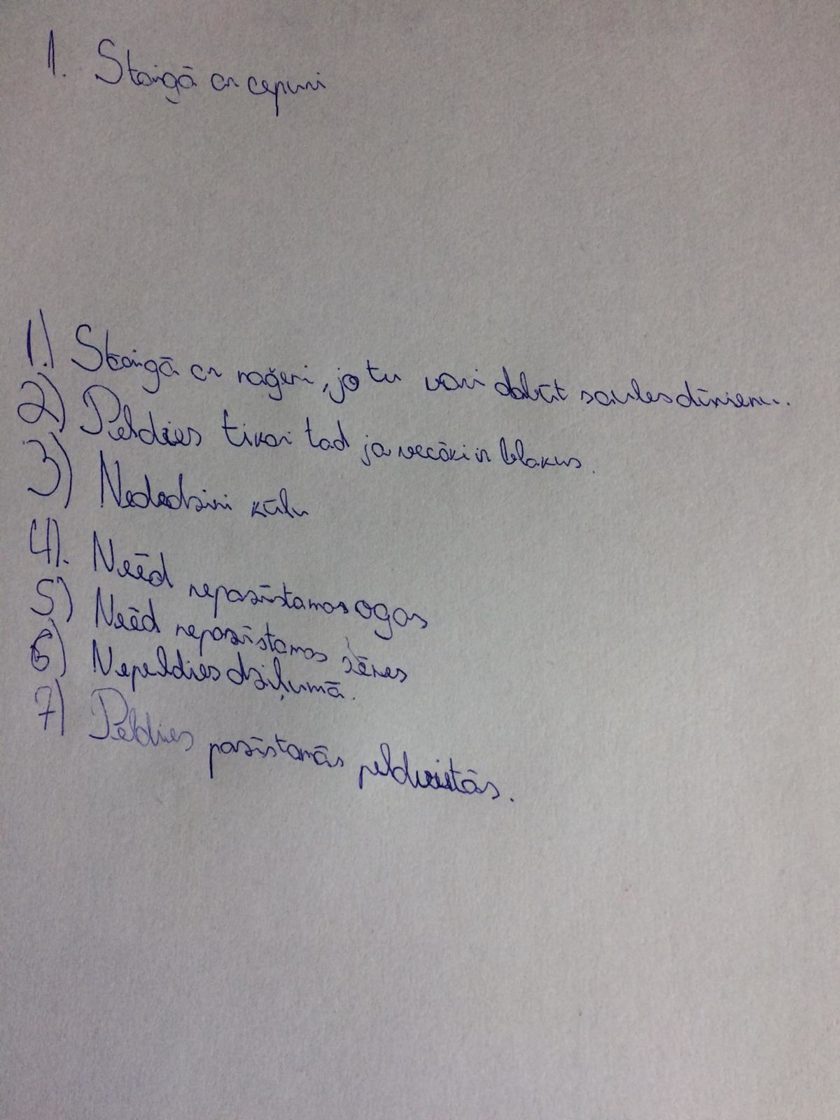 1. Staigā ar cepuri
1.) Staigā ar naģeni, jo tu vari dabūt saulesdūrienu..
2) Peldies tikai tad ja vecāki ir blakus.
3) Nededzini kūlu
4). Neēd nepazīstamas ogas
5) Neēd nepazīstamas sēnes
6) Nepeldies dziļumā.
7) Peldies pazīstamās peldvietās.